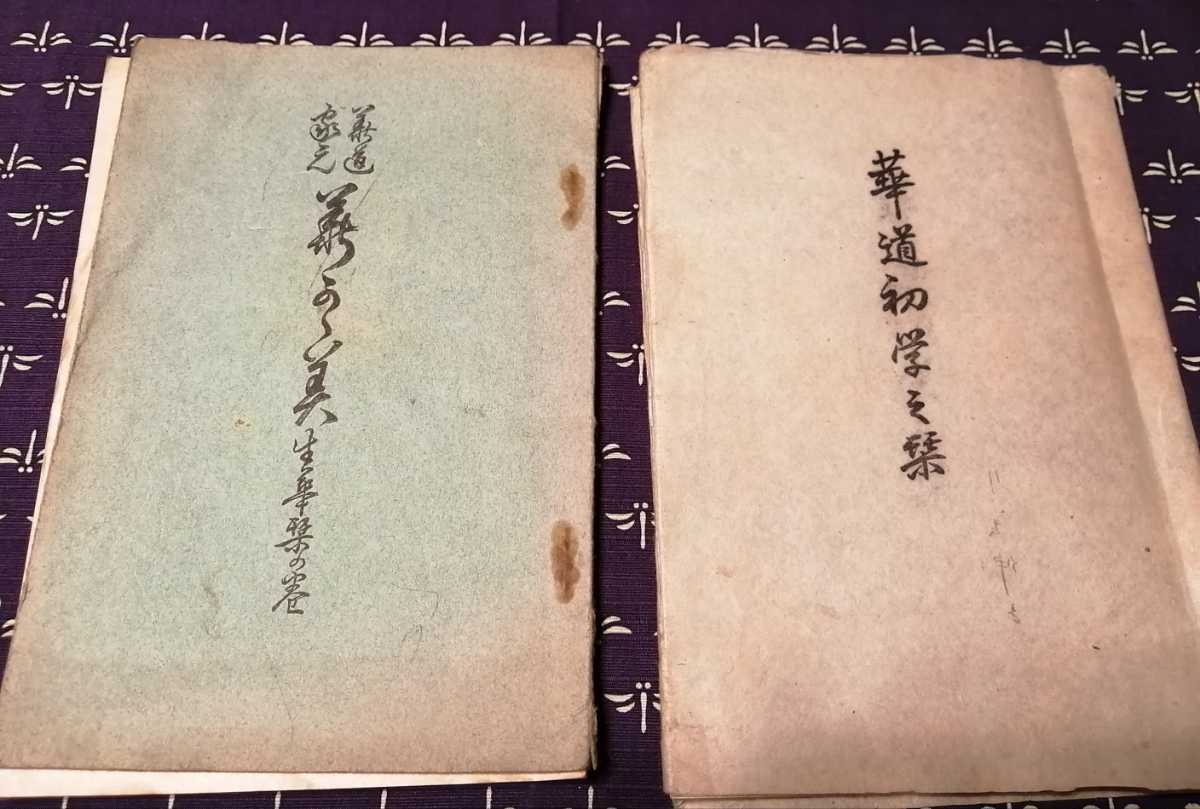 華道
家元
華かゝ美 生華栞の巻
華道初学之栞